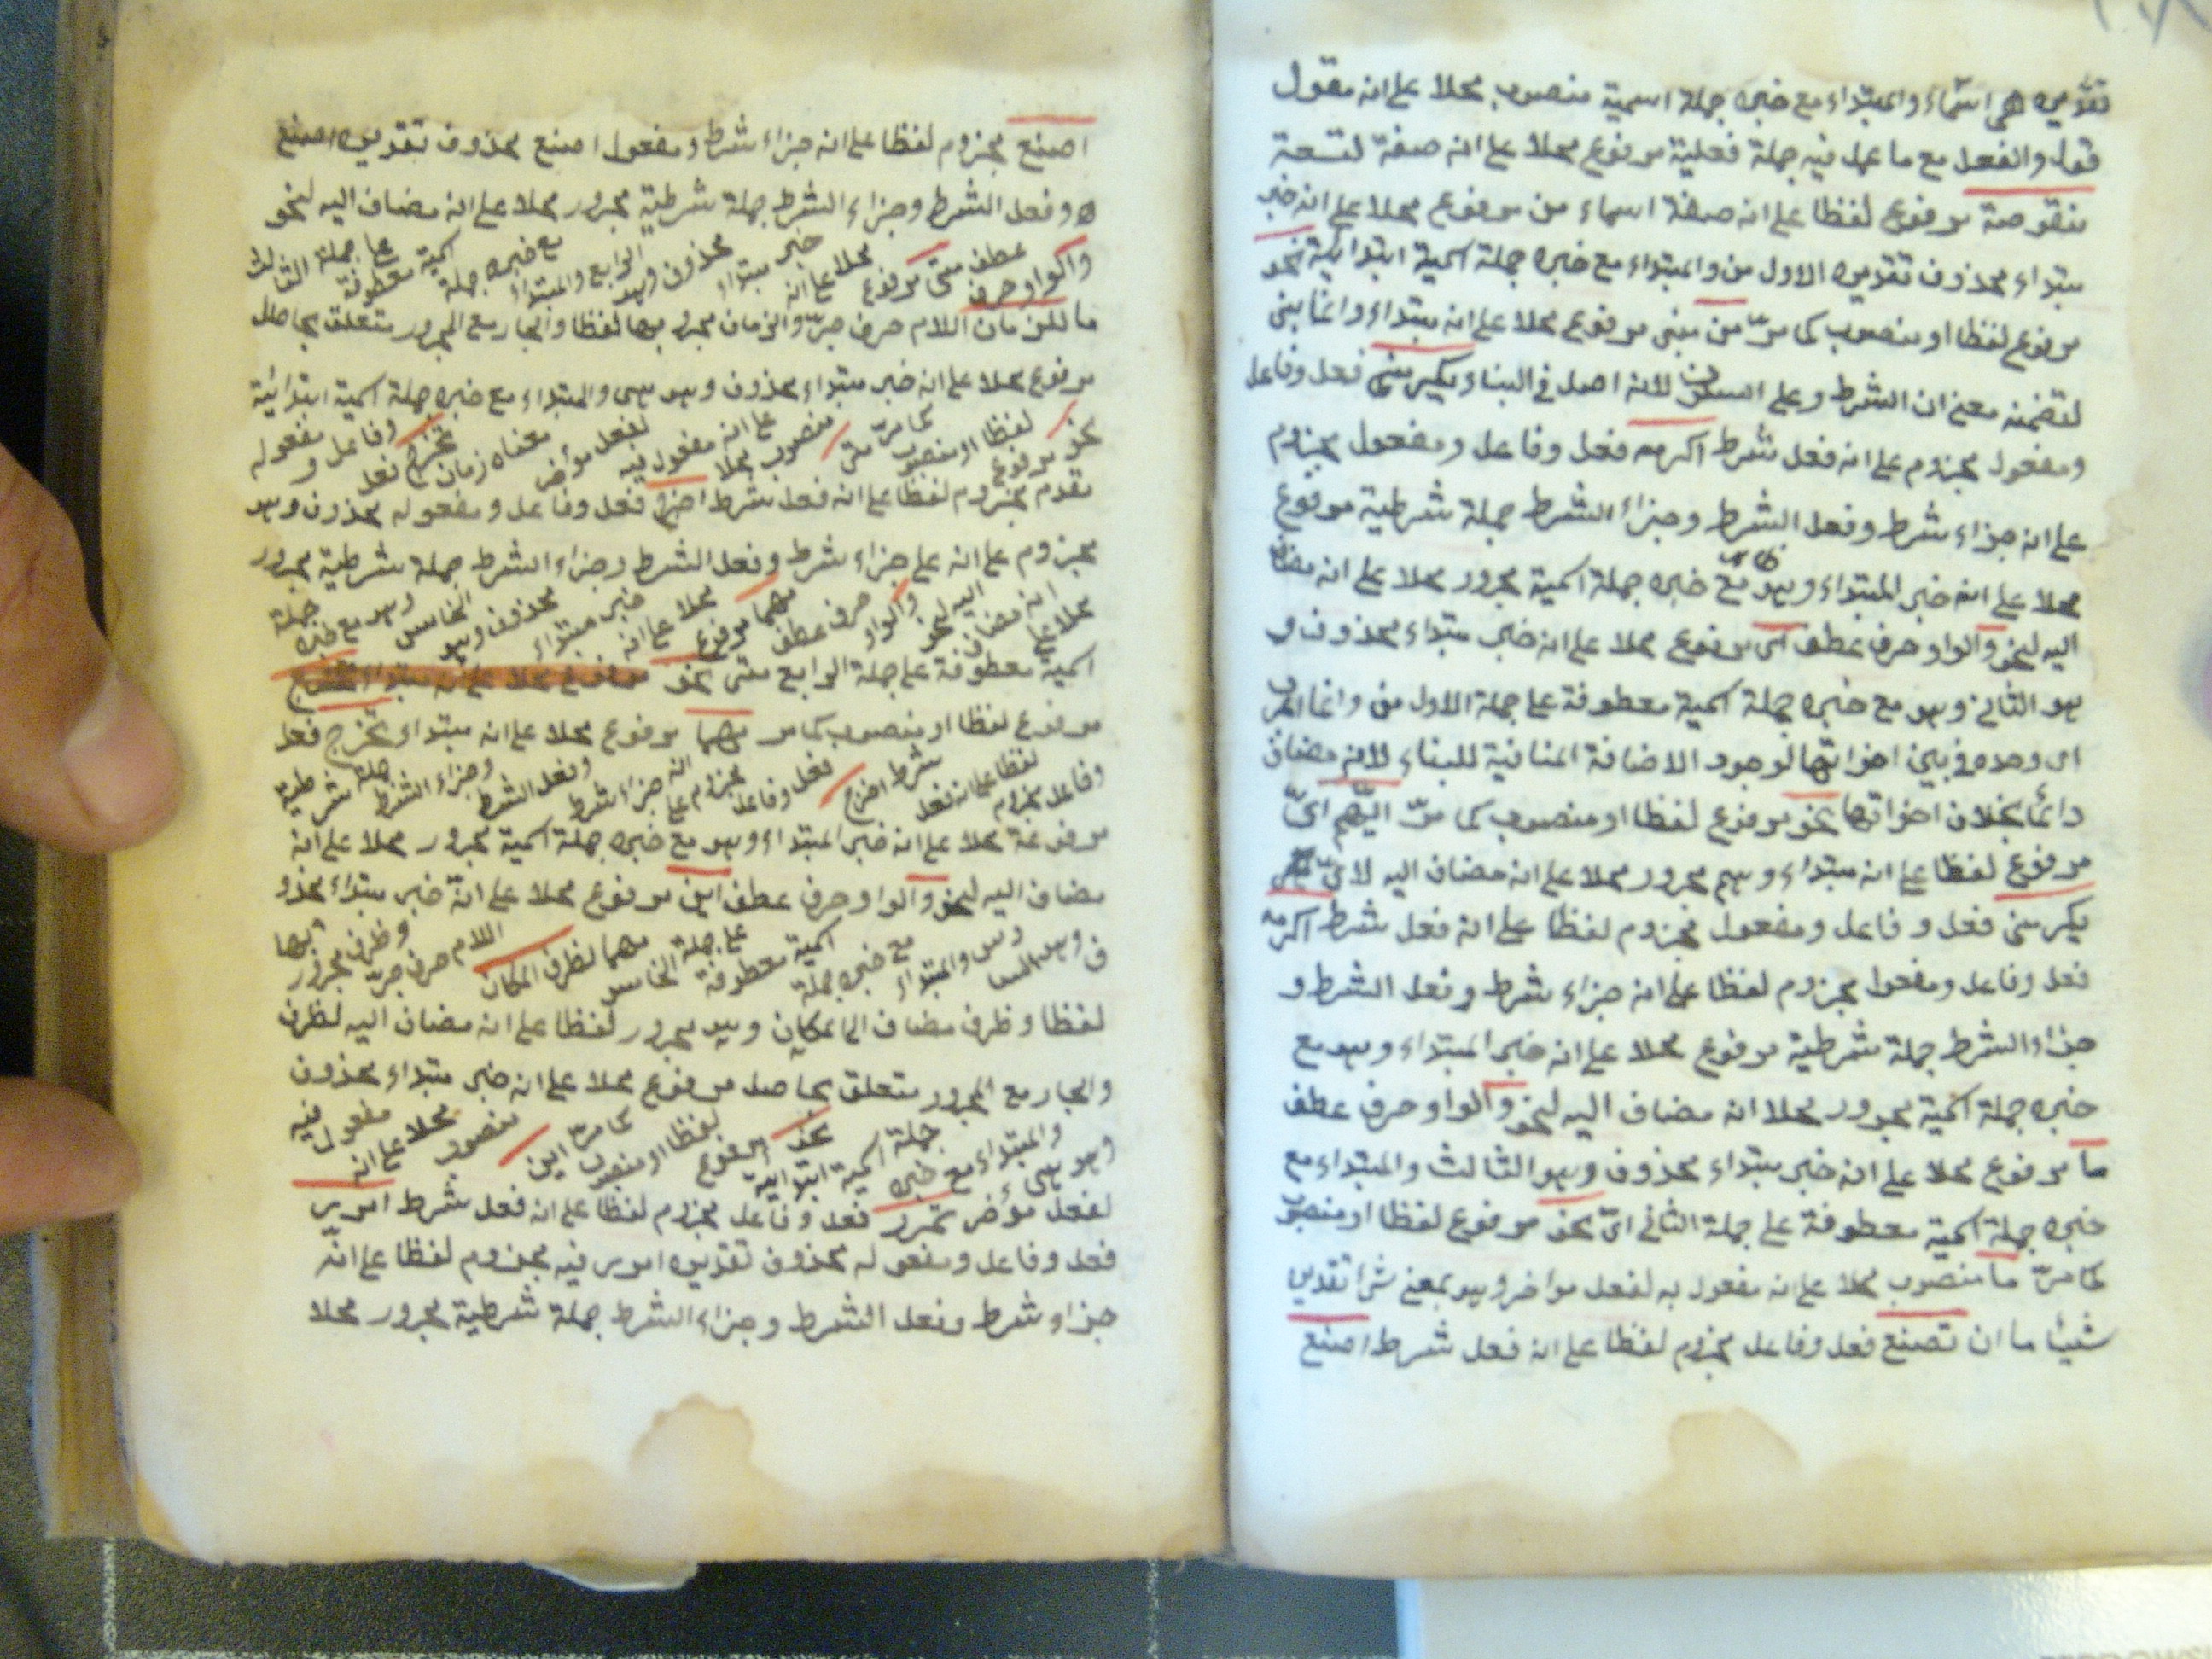 تقديره هى اسماء والمبتداء مع خبره جملة اسمية منصوب محلا على انه مقول
قول والفعل مع ما عمل فيه جملة فعلية مرفوع محلا على انه صفة لتسعة
منقوصة مرفوع لفظا على انه صفة اسماء من مرفوع محلا على انه خبر
مبتداء محذوف تقديره الاول من والمبتداء مع خبره جملة اسمية ابتدائية نحو
مرفوع لفظا او منصوب كما مرّ من مبنى مرفوع محلا على انه مبتداء وانما بنى
لتضمنه معنى ان الشرط وعلى السكون لانه اصل فى البنا ويكرمنى فعل وفاعل
ومفعول مجزوم على انه فعل شرط اكرمه فعل وفاعل ومفعول مجزوم
على انه جزاء شرط وفعل الشرط وجزاء الشرط جملة شرطية مرفوع
محلا على انه خبر المبتداء وهو مع خبره جملة اسمية مجرور محلا على انه مضاف
اليه لنحو والواو حرف عطف اى مرفوع محلا على انه خبر مبتداء محذوف و
هو الثانى وهو مع خبره جملة اسمية معطوفة على جملة الاول من وانما اعرب
اى وحده فى بين اخواتها لوجود الاضافة المنافية للبناء لانه مضاف
دائما بخلاف اخواتها نحو مرفوع لفظا او منصوب كما مرّ ايّهم اىّ
مرفوع لفظا على انه مبتداء وهم مجرور محلا على انه مضاف اليه لاىّ
يكرمنى فعل وفاعل ومفعول مجزوم لفظا على انه فعل شرط اكرمه
فعل وفاعل ومفعول مجزوم لفظا على انه جزاء شرط وفعل الشرط و
جزاء الشرط جملة شرطية مرفوع محلا على انه خبر المبتداء وهو مع
خبره جملة اسمية مجرور محلا انه مضاف اليه لنحو والواو حرف عطف
ما مرفوع محلا على انه خبر مبتداء محذوف وهو الثالث والمبتداء مع
خبره جملة اسمية معطوفة على جملة الثانى اىّ نحو مرفوع لفظا او منصوب
كما مرّ ما منصوب محلا على انه مفعول به لفعل مؤاخر وهو بمعنى شئ تقدير
شيئا ما ان تصنع فعل وفاعل مجزوم لفظا على انه فعل شرط اصنع
اصنع مجزوم لفظا على انه جزاء شرط ومفعول اصنع محذوف تقديره اصنع
ه وفعل الشرط وجزاء الشرط جملة شرطية مجرور محلا على انه مضاف اليه لنحو
والواو حرف عطف متى مرفوع محلا على انه خبر مبتداء محذوف وهو الرابع والمبتداء مع خبره جملة اسمية معطوفة على جملة الثالث
ما للزمان اللام حرف جرّ والزمان مجرور بها لفظا والجار مع المجرور متعلق بحاصل
مرفوع محلا على انه خبر مبتداء محذوف وهو هى والمبتداء مع خبره جملة اسمية ابتدائية
نحو مرفوع لفظا او منصوب كما مرّ متى منصوب محلا على انه مفعول فيه لفعل مؤخر معناه زمان تخرج فعل وفاعل و مفعوله
مقدم مجزوم لفظا على انه فعل شرط اخرج فعل وفاعل ومفعوله محذوف وهو
مجزوم على انه على جزاء شرط وفعل الشرط وجزاء الشرط جملة شرطية مجرور
محلا على انه مضاف اليه لنحو والواو حرف عطف مهما مرفوع محلا على انه خبر مبتداء محذوف وهو الخامس وهو مع خبره جملة
اسمية معطوفة على جملة الرابع متى نحو
مرفوع لفظا او منصوب كما مر مهما مرفوع محلا على انه مبتداء وتخرج فعل
وفاعل مجزوم لفظا على انه فعل شرط اخرج فعل وفاعل مجزوم على انه جزاء شرط وفعل الشرط وجزاء الشرط جملة شرطية
مرفوعة محلا على انه خبر المبتداء وهو مع خبره جملة اسمية مجرور محلا على انه
مضاف اليه لنحو والواو حرف عطف اين مرفوع محلا على انّه خبر مبتداء محذو
ف وهو السا دس والمبتداء مع خبره جملة اسمية معطوفة على جملة الخامس مهما لظرف المكان اللام حرف جرّ وظرف مجرور بها
لفظا وظرف مضاف الى المكان وهو مجرور لفظا على انه مضاف اليه لظرف
والجار مع المجرور متعلق بحاصل مرفوع محلا على انه خبر مبتداء محذوف
وهو هى والمبتداء مع خبره جملة اسمية ابتدائية نحو مرفوع لفظا او منصوب كما مرّ اين منصوب محلا على انه مفعول فيه
لفعل مؤخر تمرر فعل وفاعل مجزوم لفظا على انه فعل شرط امرر
فعل وفاعل ومفعوله محذوف تقديره امرر فيه مجزوم لفظا على انّه
جزاء شرط وفعل الشرط وجزاء الشرط جملة شرطية مجرور محلا